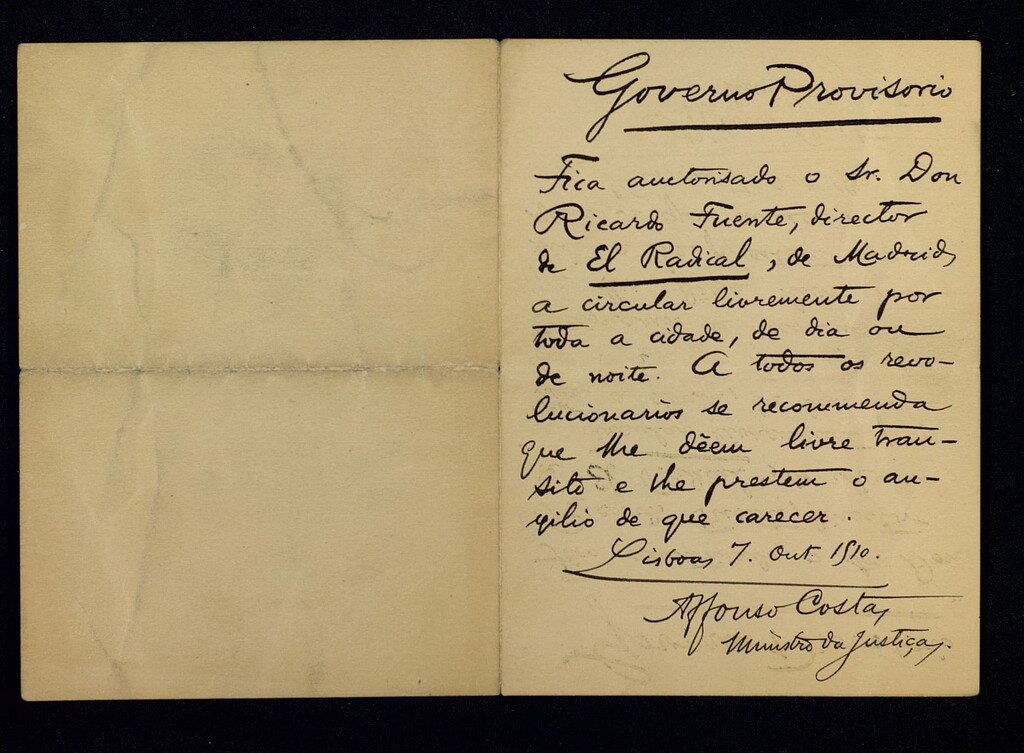 Governo Provisorio
Fica auctorisado o Sr. Don
Ricardo Fuente, director
de El Radical, de Madrid,
a circular livremente por
toda a cidade, de dia ou
de noite. A todos os revo-
lucionarios se recommenda
que lhe dêem livre tran-
sito e lhe prestem o au-
xilio de que carecer.
Lisboa, 7. Out. 1910.
Affonso Costa,
Ministro da Justiça.